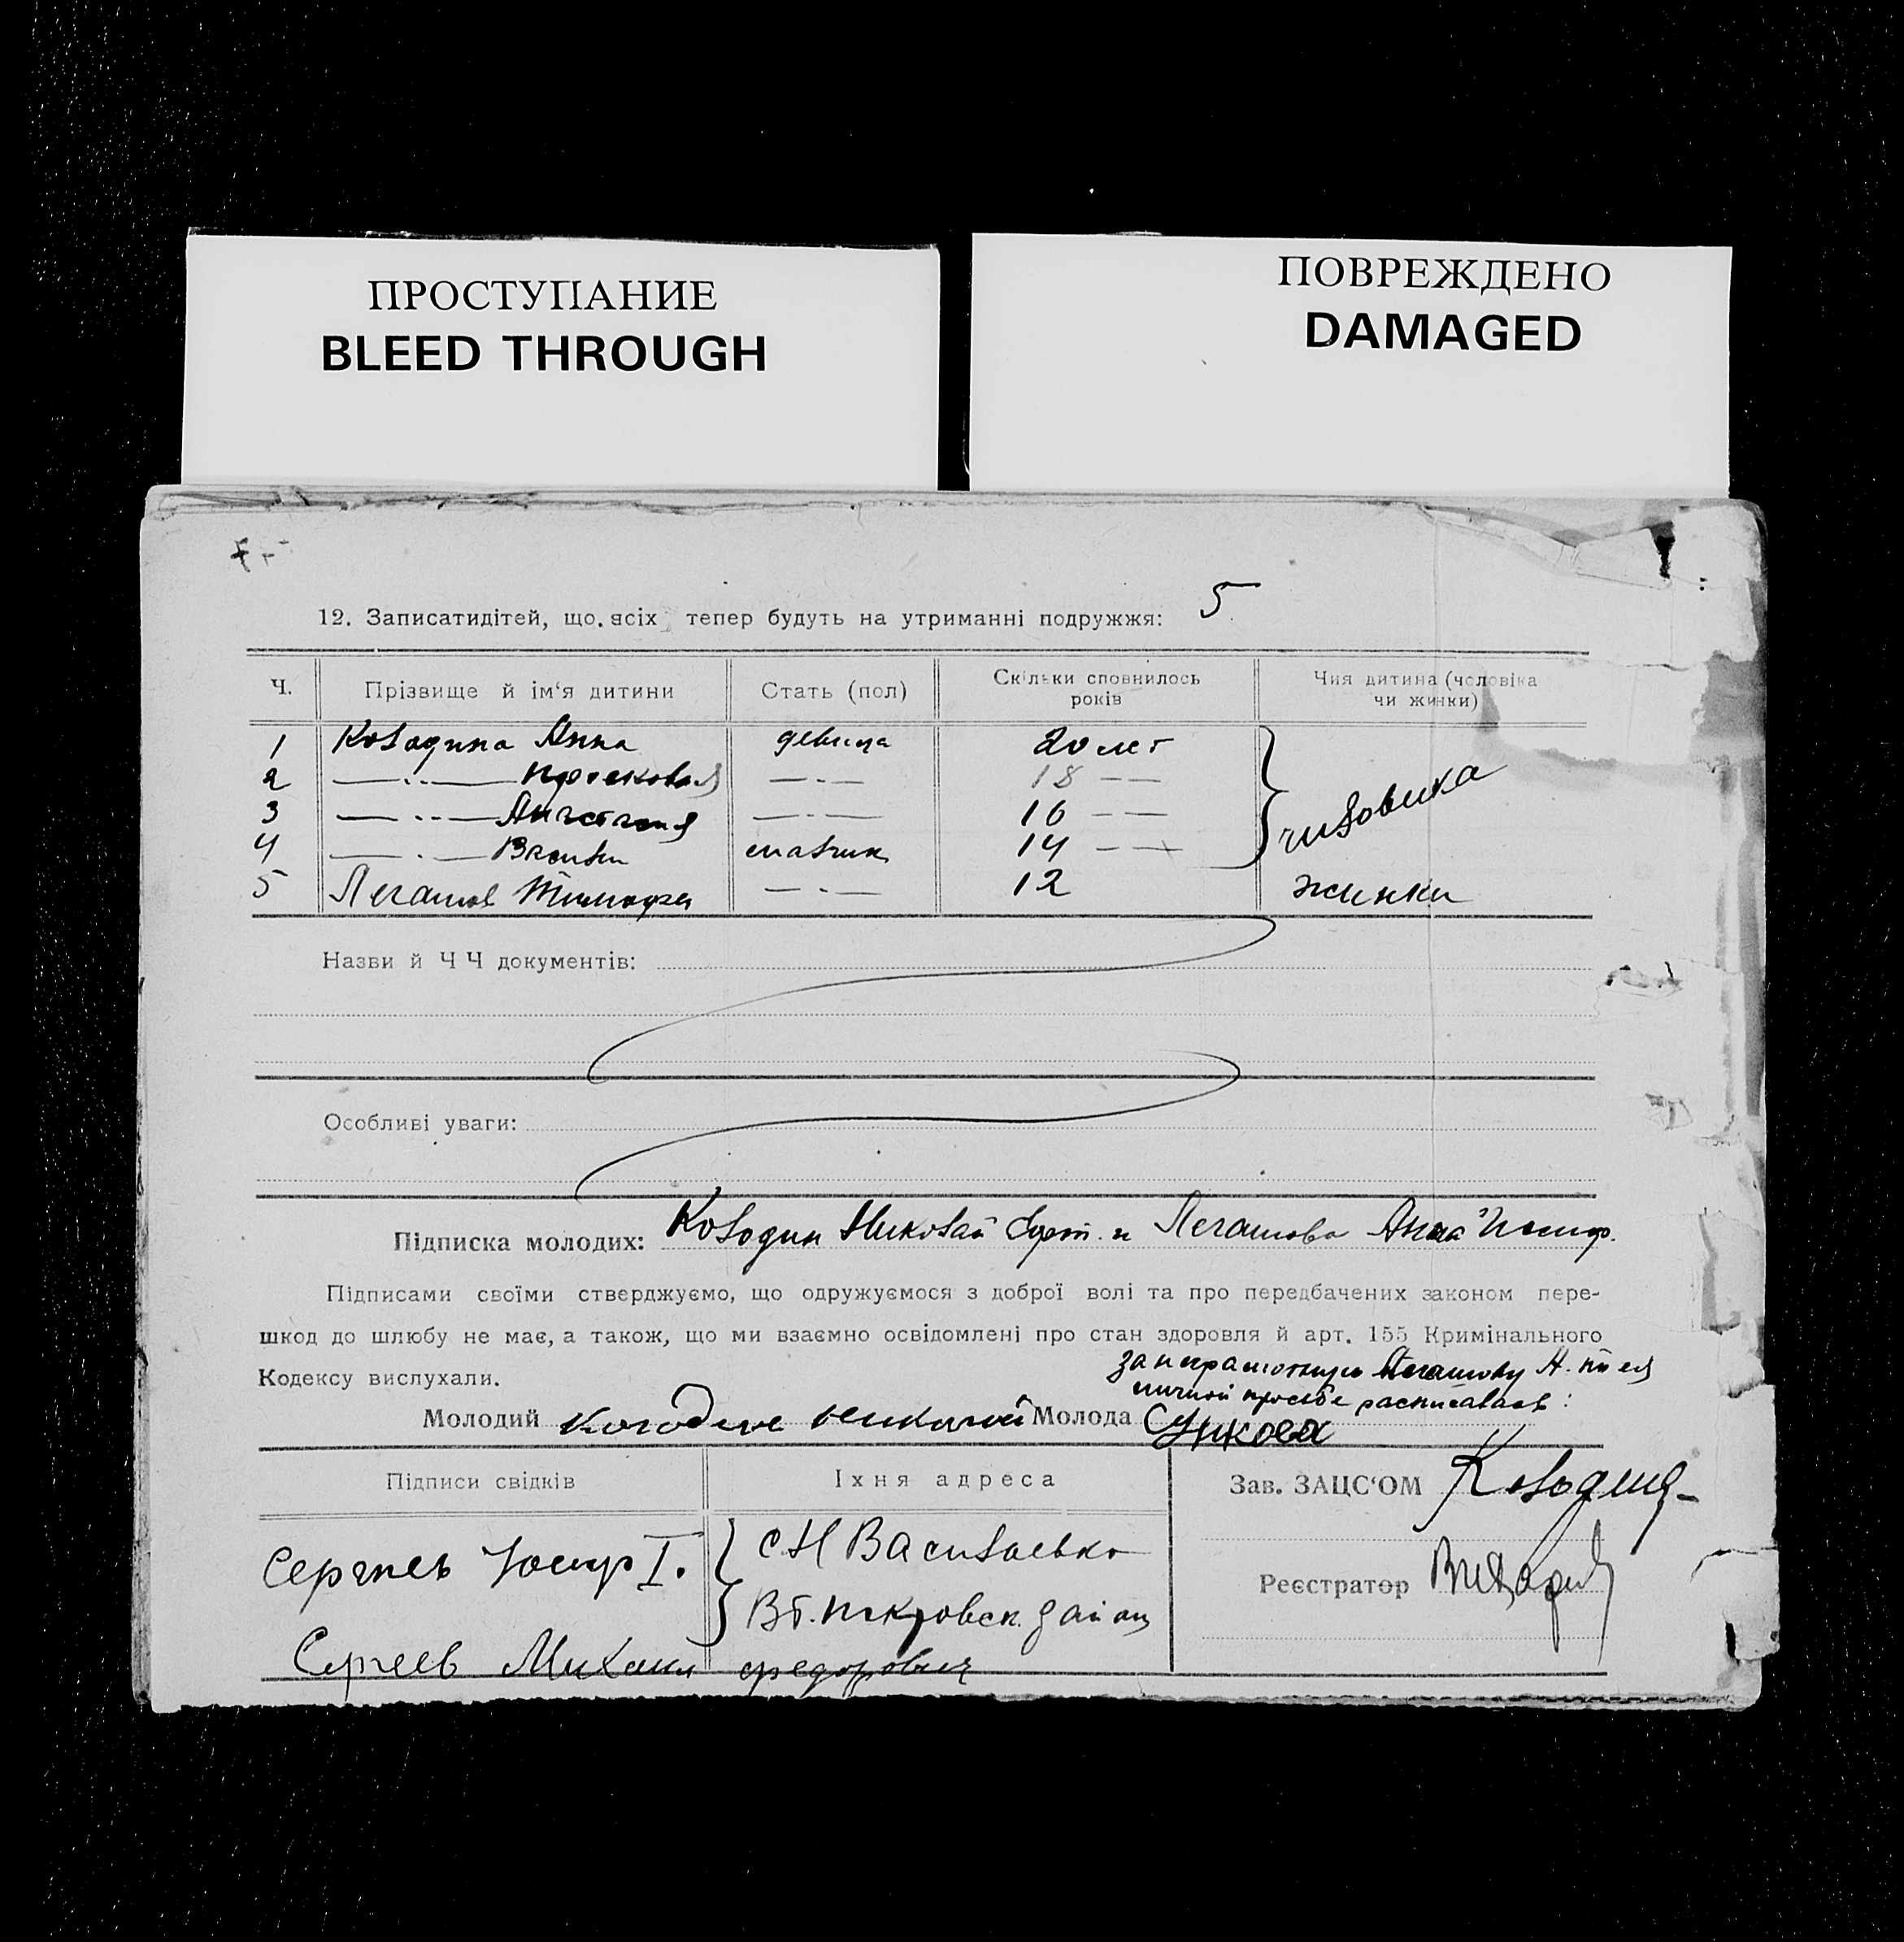 ПРОСТУПАНИЕ
BLEED THROUGH
ПОВРЕЖДЕНО
DAMAGED
12. Записатидітей, що. всіх тепер будуть на утриманні подружжя: 5
Ч. Прізвище й ім'я дитини Стать (пол) Скільки сповнилось років Чия дитина (чоловіка чи жинки)
1 Колодина Анна девица 20 лет
2 —··— —·— 18 — —
3 —··— Анастасия —·— 16 — —
4 —·— 14 — —
5 Легашов Тимофей —·— 12 жинки
чиловика
Назви й Ч Ч документів:
Особливі уваги:
Підписка молодих: Колодин Николай и Легашова Анна
Підписами своїми стверджуємо, що одружуємося з доброї волі та про передбачених законом пере-
шкод до шлюбу не має, а також, що ми взаємно освідомлені про стан здоровля й арт. 155 Кримінального
Кодексу вислухали.
за неграмотную Легашову А. по ея
личной просьбе расписалась:
Молодий Молода
Підписи свідків Їхня адреса Зав. ЗАЦС'ОМ
Сергеев I. с Н Васильевка
Реєстратор
Сергеев Михаил Федорович